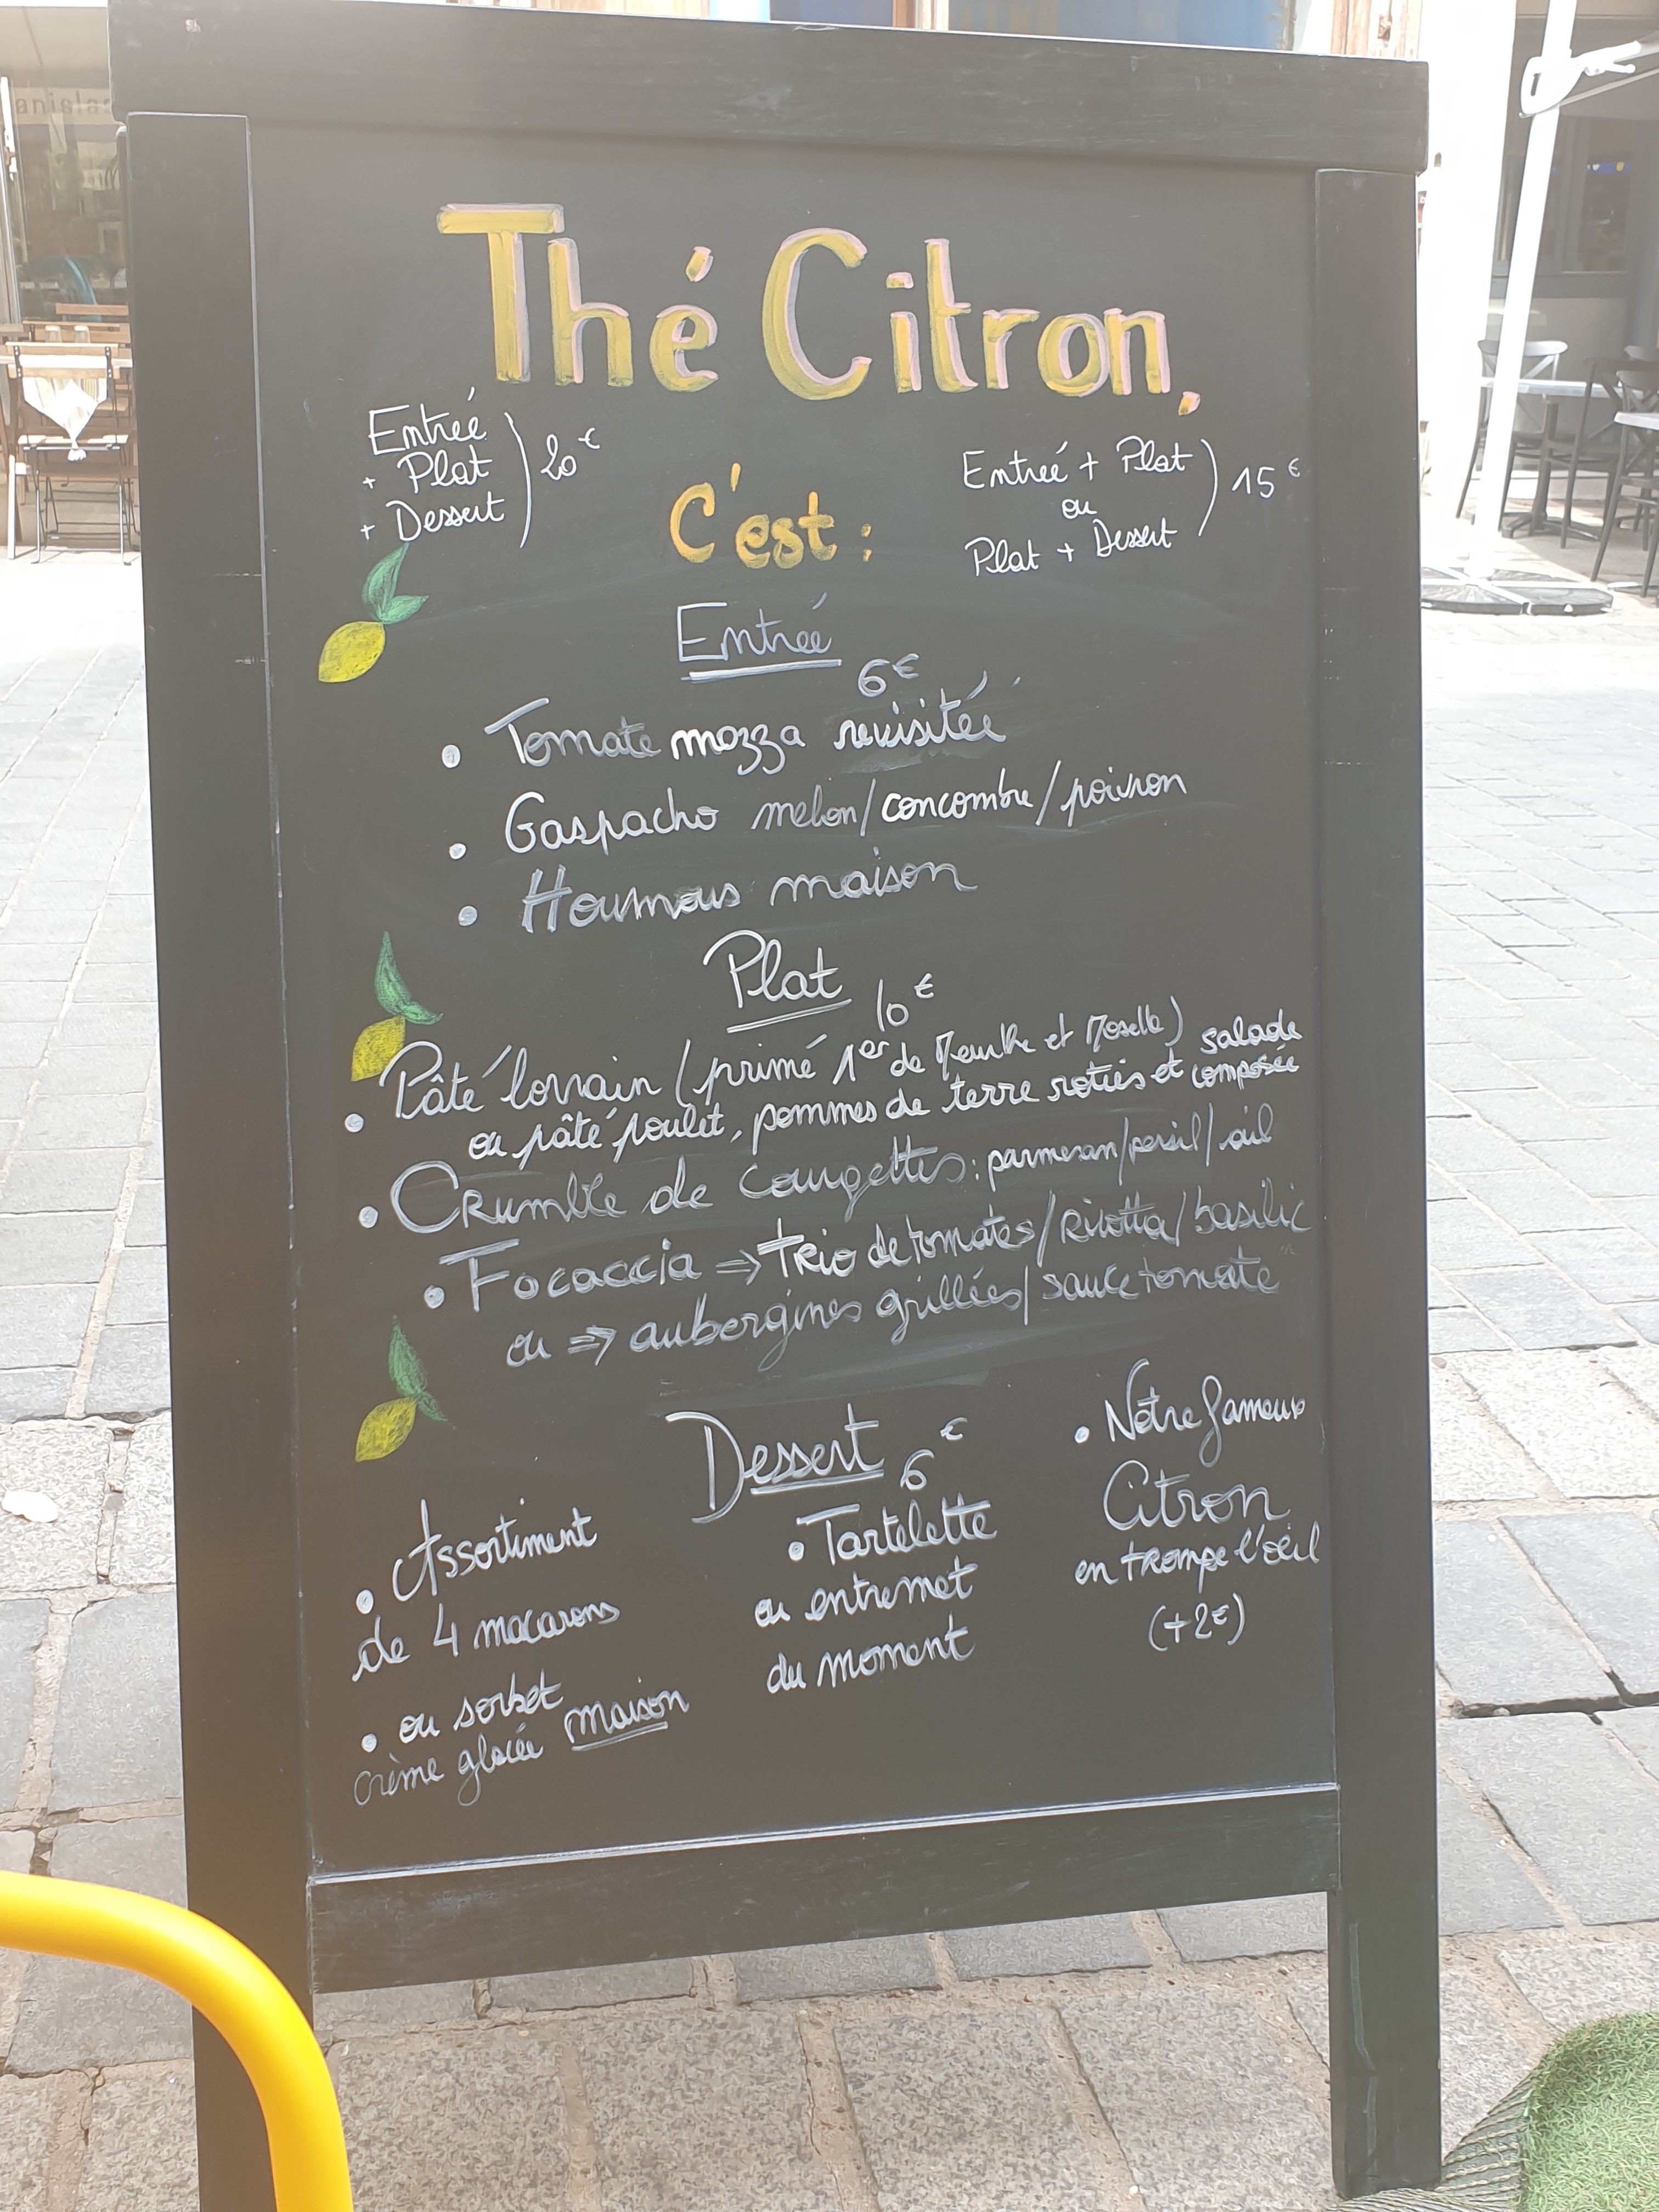 aniela
Thé Citron,
Entrée
+ Plat
+ Dessert
20€
C'est :
Entrée + Plat
ou
Plat + Dessert
15€
Entrée
6€
• Tomate mozza revisitée
• Gaspacho melon/concombre/poivron
• Houmous maison
Plat
10€
• Pâté lorrain (primé 1er de Meurthe et Moselle) salade
ou pâté poulet, pommes de terre roties et composée
• Crumble de courgettes : parmesan/persil/ail
• Focaccia ⇒ trio de tomates/Ricotta/basilic
ou ⇒ aubergines grillées/sauce tomate
Dessert
6€
• Assortiment
de 4 macarons
• ou sorbet
crème glacée maison
• Tartelette
ou entremet
du moment
• Notre fameux
Citron
en trompe l'oeil
(+2€)